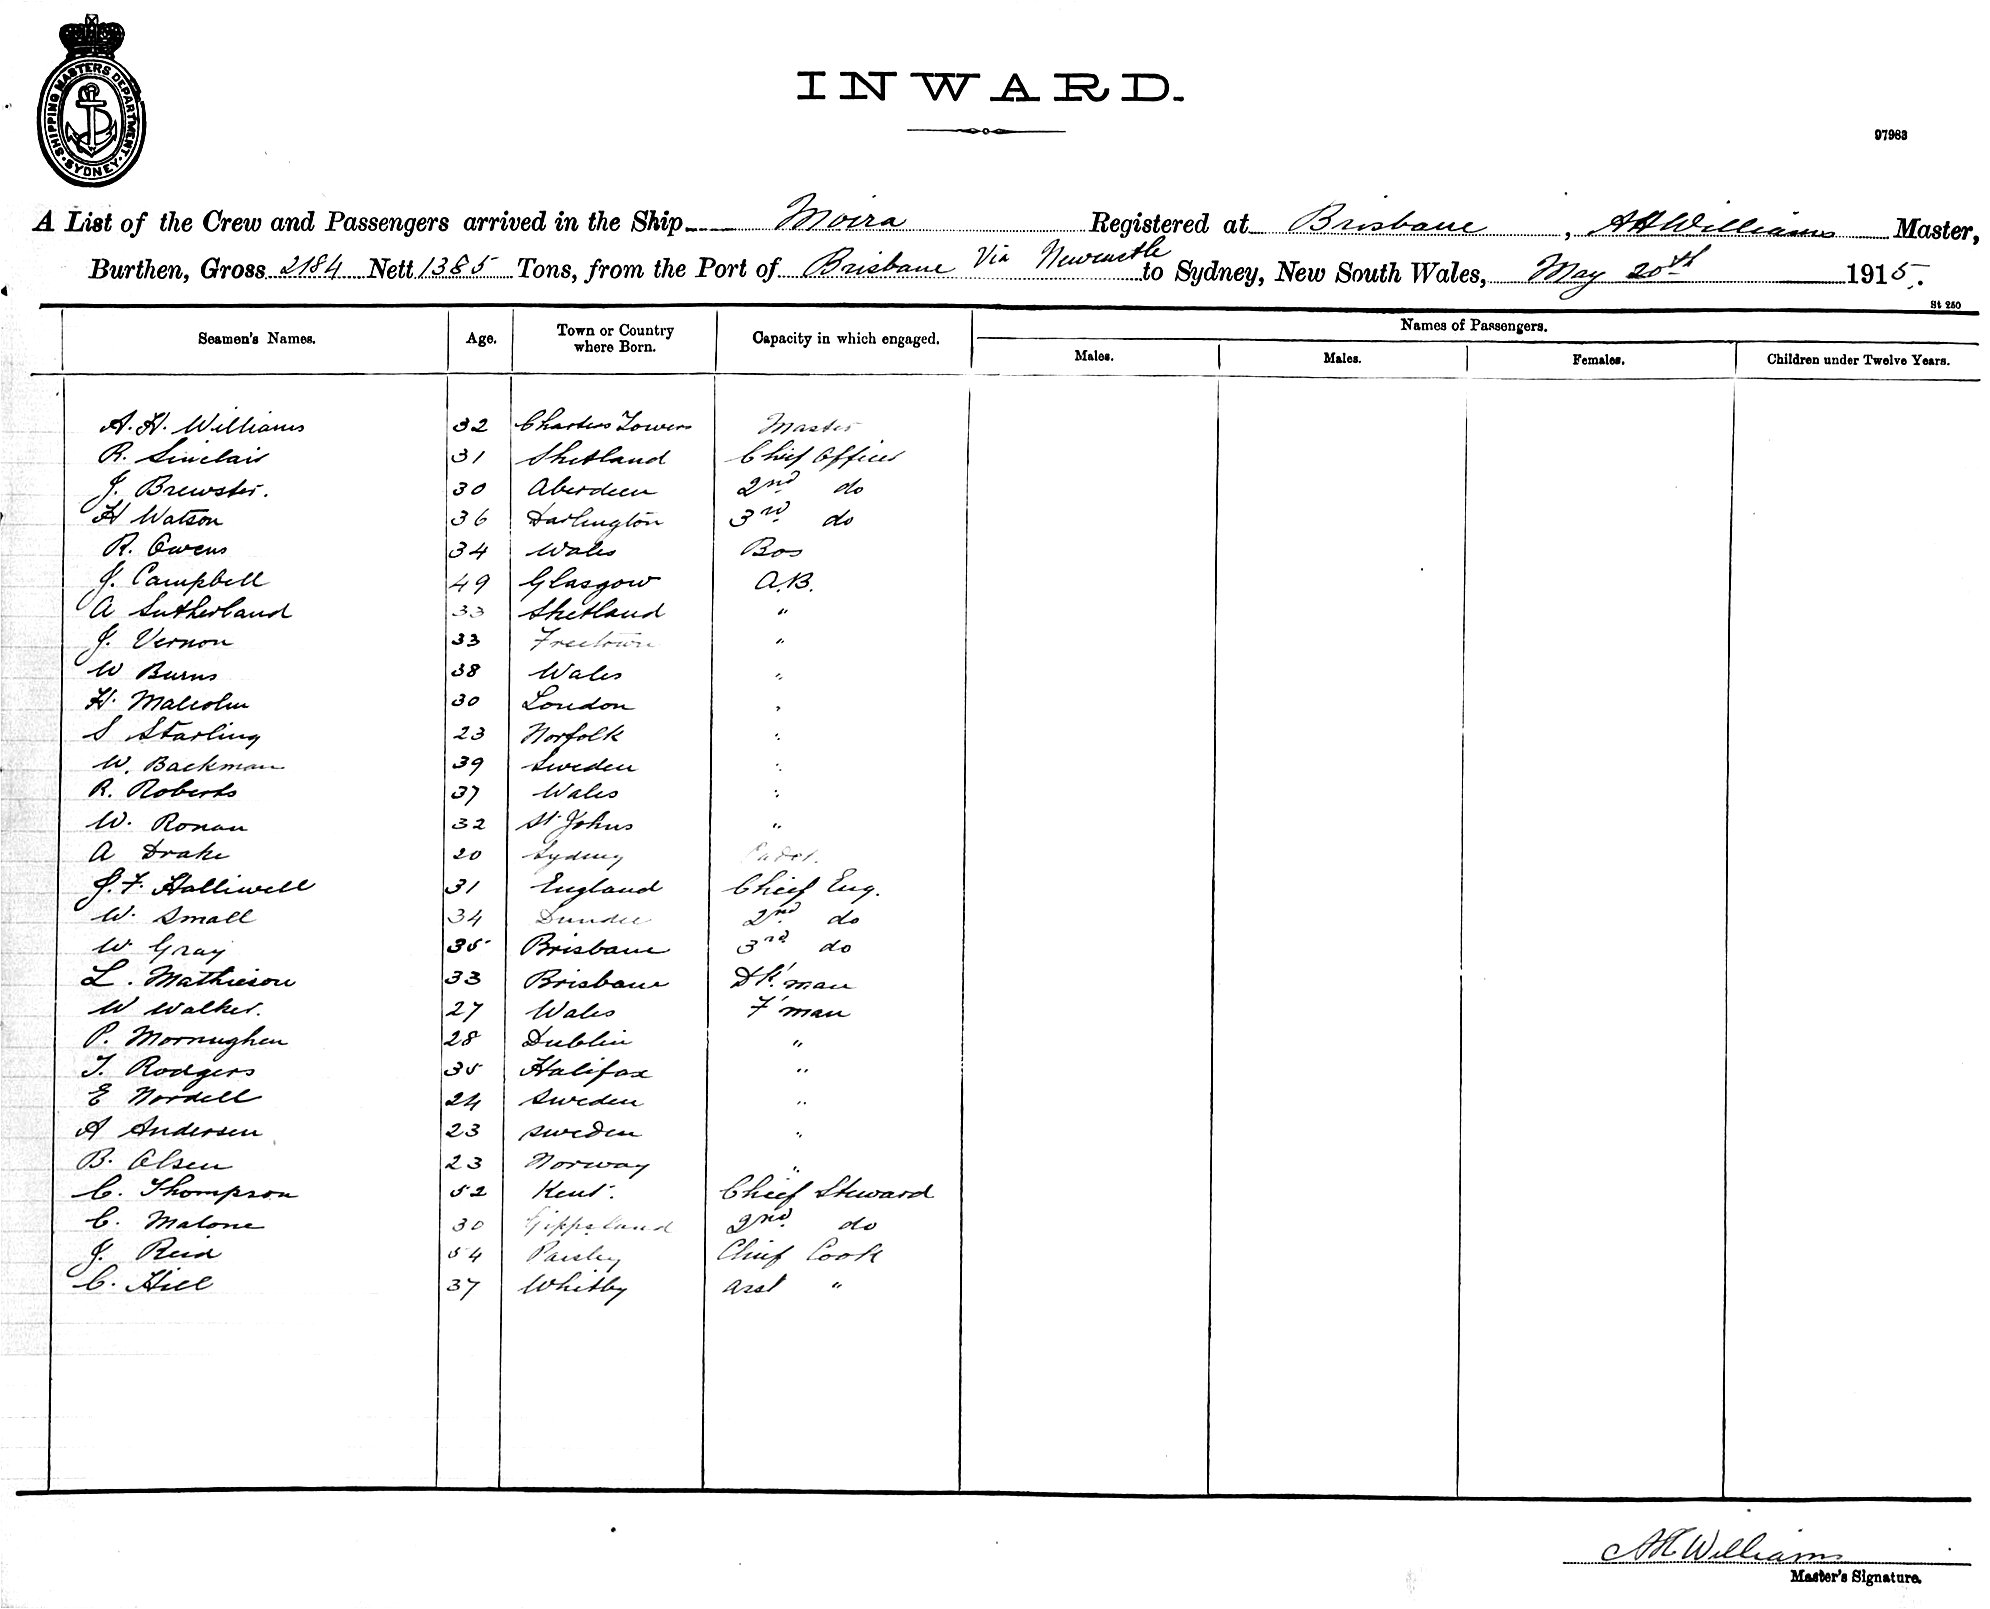 SHIPPING MASTERS DEPARTMENT
SYDNEY
INWARD.
97963
A List of the Crew and Passengers arrived in the Ship Moira Registered at Brisbane, AH Williams Master,
Burthen, Gross 2184 Nett 1385 Tons, from the Port of Brisbane Via Newcastle to Sydney, New South Wales, May 20th 1915.
St 250
Seamen's Names. Age. Town or Country where Born. Capacity in which engaged. Names of Passengers.
Males. Males. Females. Children under Twelve Years.
A. H. Williams 32 Charters Towers Master
R. Sinclair 31 Shetland Chief Officer
J. Brewster. 30 Aberdeen 2nd do
H Watson 36 Darlington 3rd do
R. Owens 34 Wales Bos
J. Campbell 49 Glasgow A.B.
A Sutherland 33 Shetland "
J. Vernon 33 Freetown "
W Burns 38 Wales "
H. Malcolm 30 London "
S Starling 23 Norfolk "
W. Backman 39 Sweden "
R. Roberts 37 Wales "
W. Ronan 32 St Johns "
A Drake 20 Sydney Cadet.
J. F. Halliwell 31 England Chief Eng.
W. Small 34 Dundee 2nd do
W. Gray 35 Brisbane 3rd do
L. Mathieson 33 Brisbane Dk'man
W Walker. 27 Wales F'man
P. Mornughen 28 Dublin "
T. Rodgers 35 Halifax "
E Nordell 24 Sweden "
A Andersen 23 Sweden "
B. Olsen 23 Norway "
C. Thompson 52 Kent. Chief Steward
C. Malone 30 Gippsland 2nd do
J. Reid 54 Paisley Chief Cook
C. Hill 37 Whitby Asst "
AH Williams
Master's Signature.